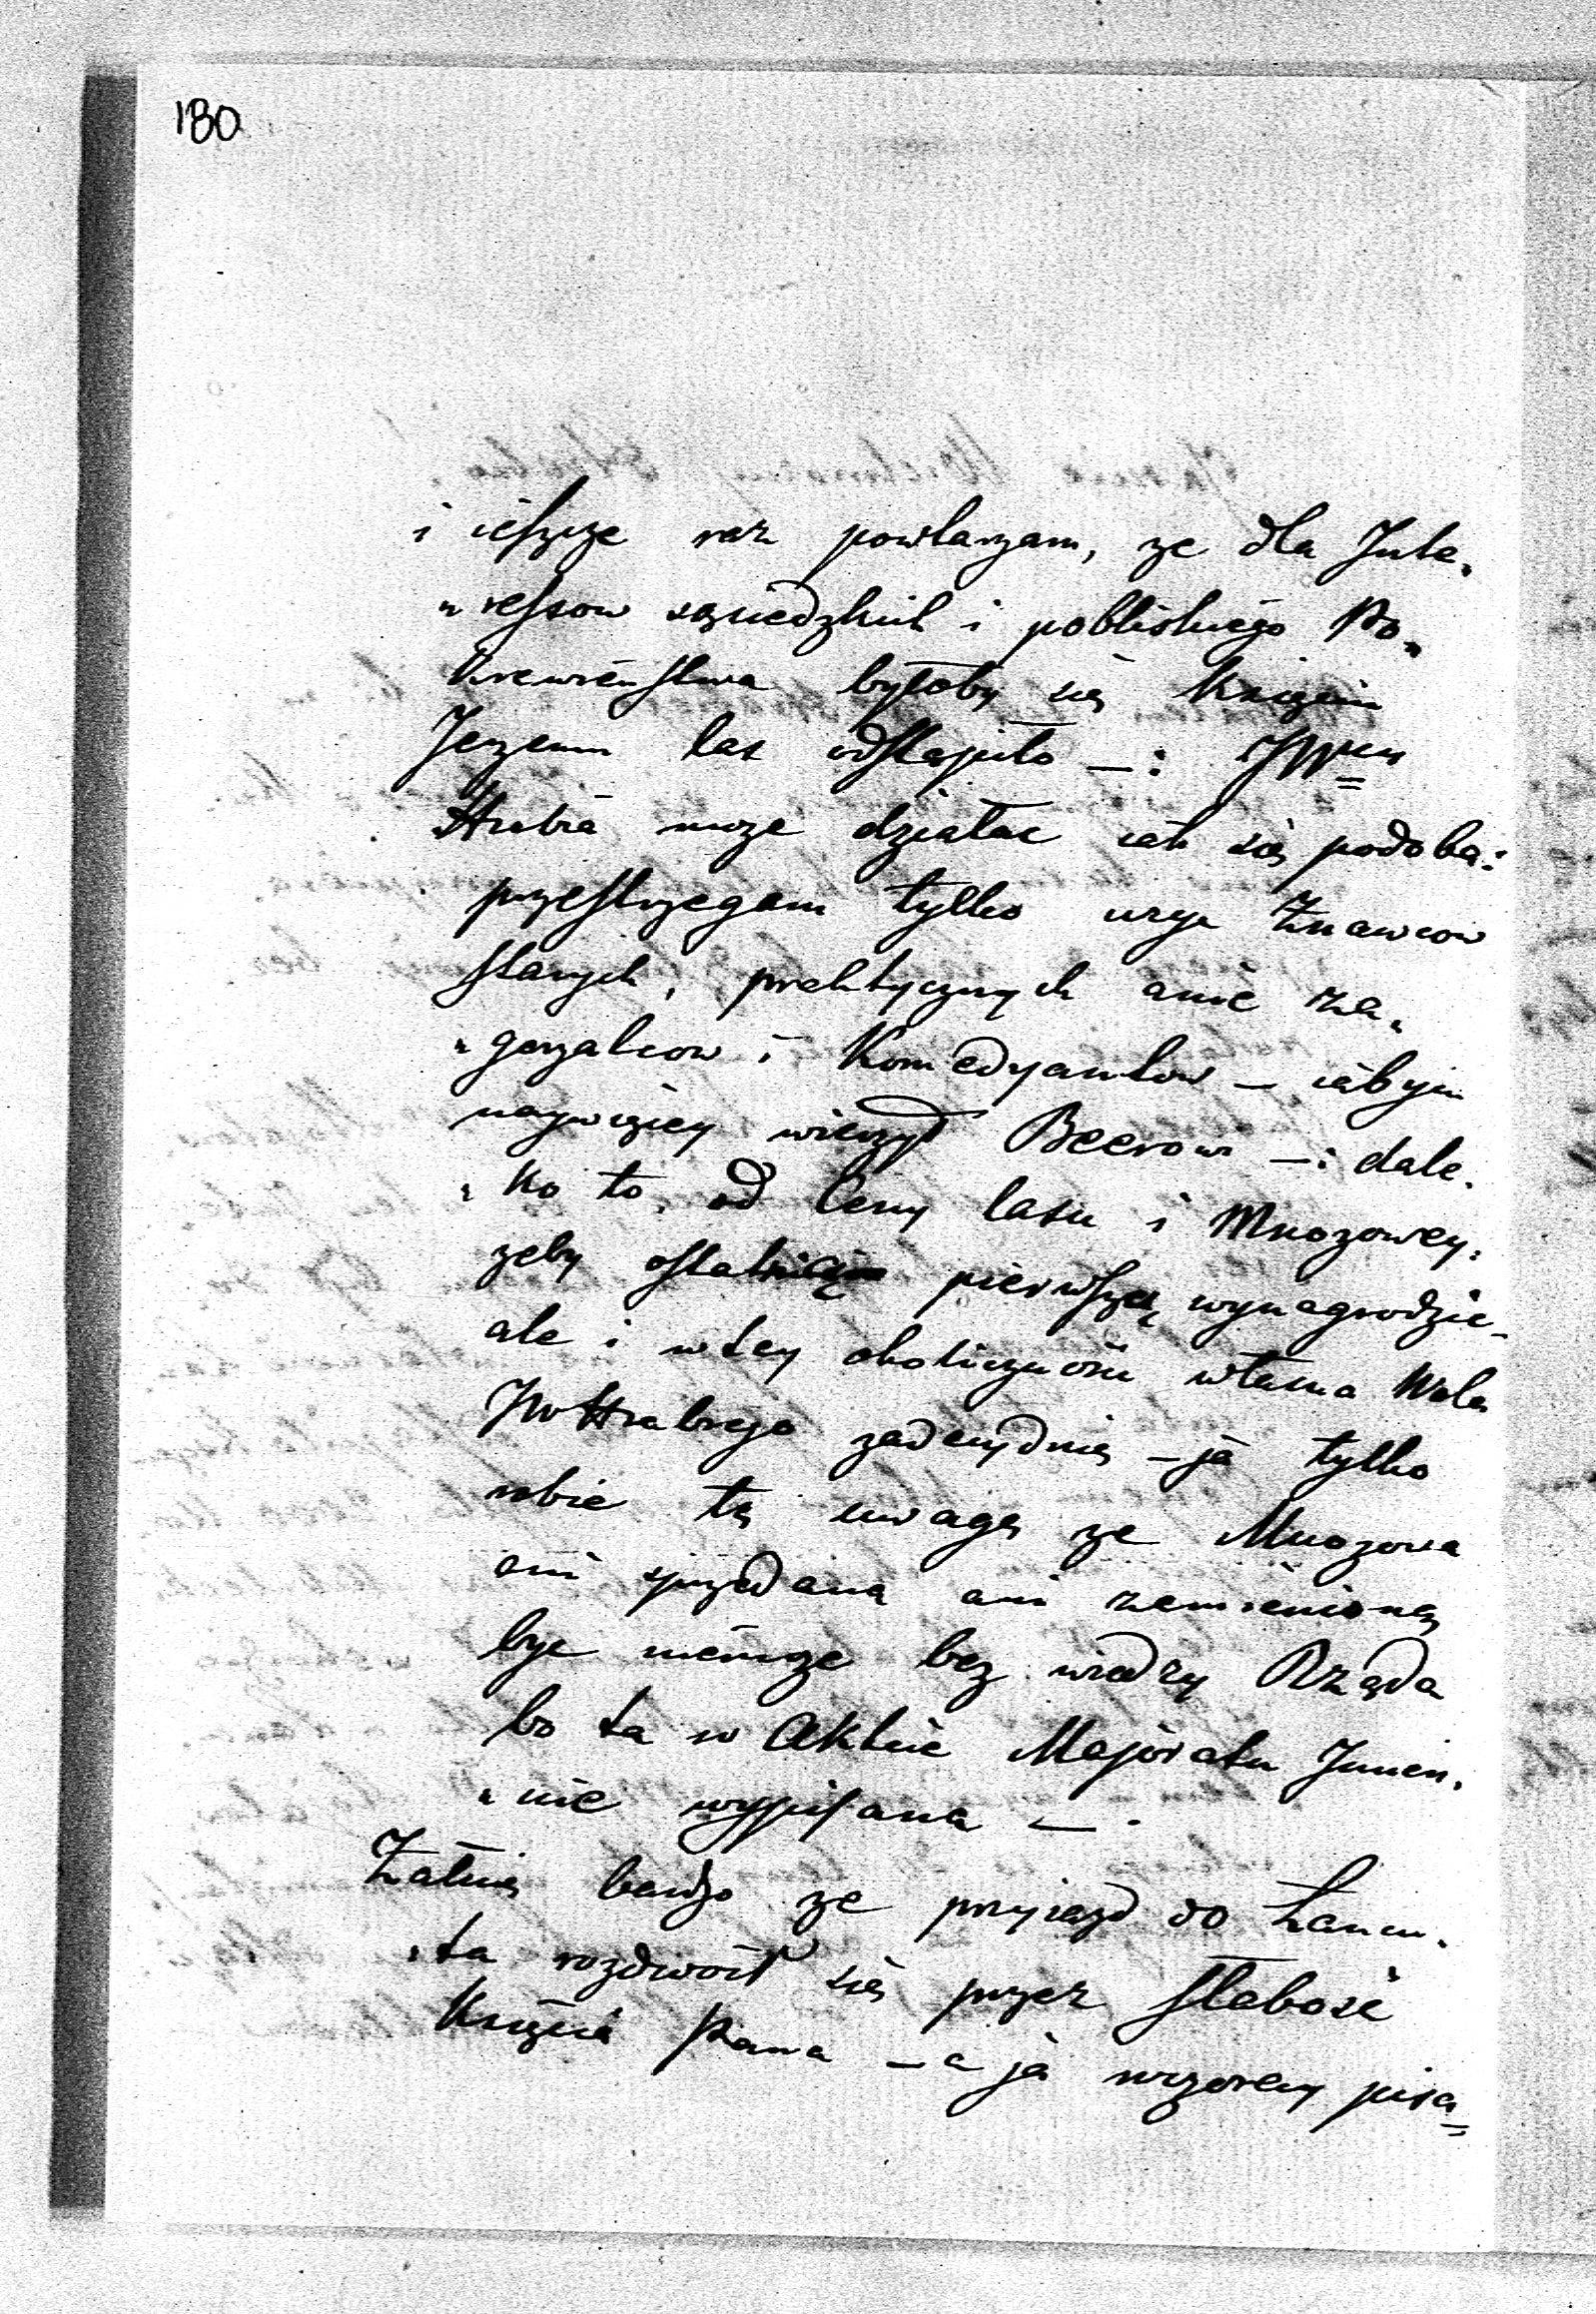 180
i ieszcze raz powtarzam, ze dla Inte„
„ressow sąsiedzkich i pobliskiego Po„
krewieństwa byłoby się Księciu
Jerzemu las odstąpiło —: JW
Hrabia moze działac iak się podoba:
przestrzegam tylko uzyc Znawcow
starych, praktycznych anie za„
„gorzalcow i Komedyantow — iabym
naywięcey wierzył Beerowi —: dale„
„ko to, od Ceny lasu i Mnozowey,
zeby ostatnią pierwszą wynagrodzic
ale i w tey okoliczności własna Wola
JW Hrabiego zadecydnie — ja tylko
robie tę uwagę ze Mnozowa
ani sprzedaną ani zamienioną
byc niemoze bez wiedzy Rządu
bo ta w Akcie Majoratu Imien„
„nie wypisana —.
Załuię bardzo ze przyiazd do Łancu„
„ta rozdwoił się przez słabość
Księcia Pana — a ja wczoray pisa=